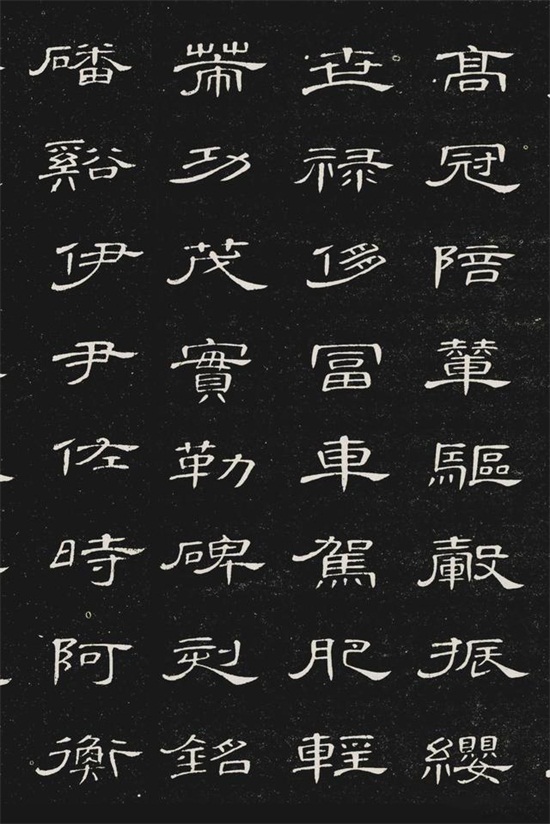 髙冠陪輦驅轂振纓
世禄侈冨車駕肥輕
策功茂實勒碑刻銘
磻谿伊尹佐時阿衡